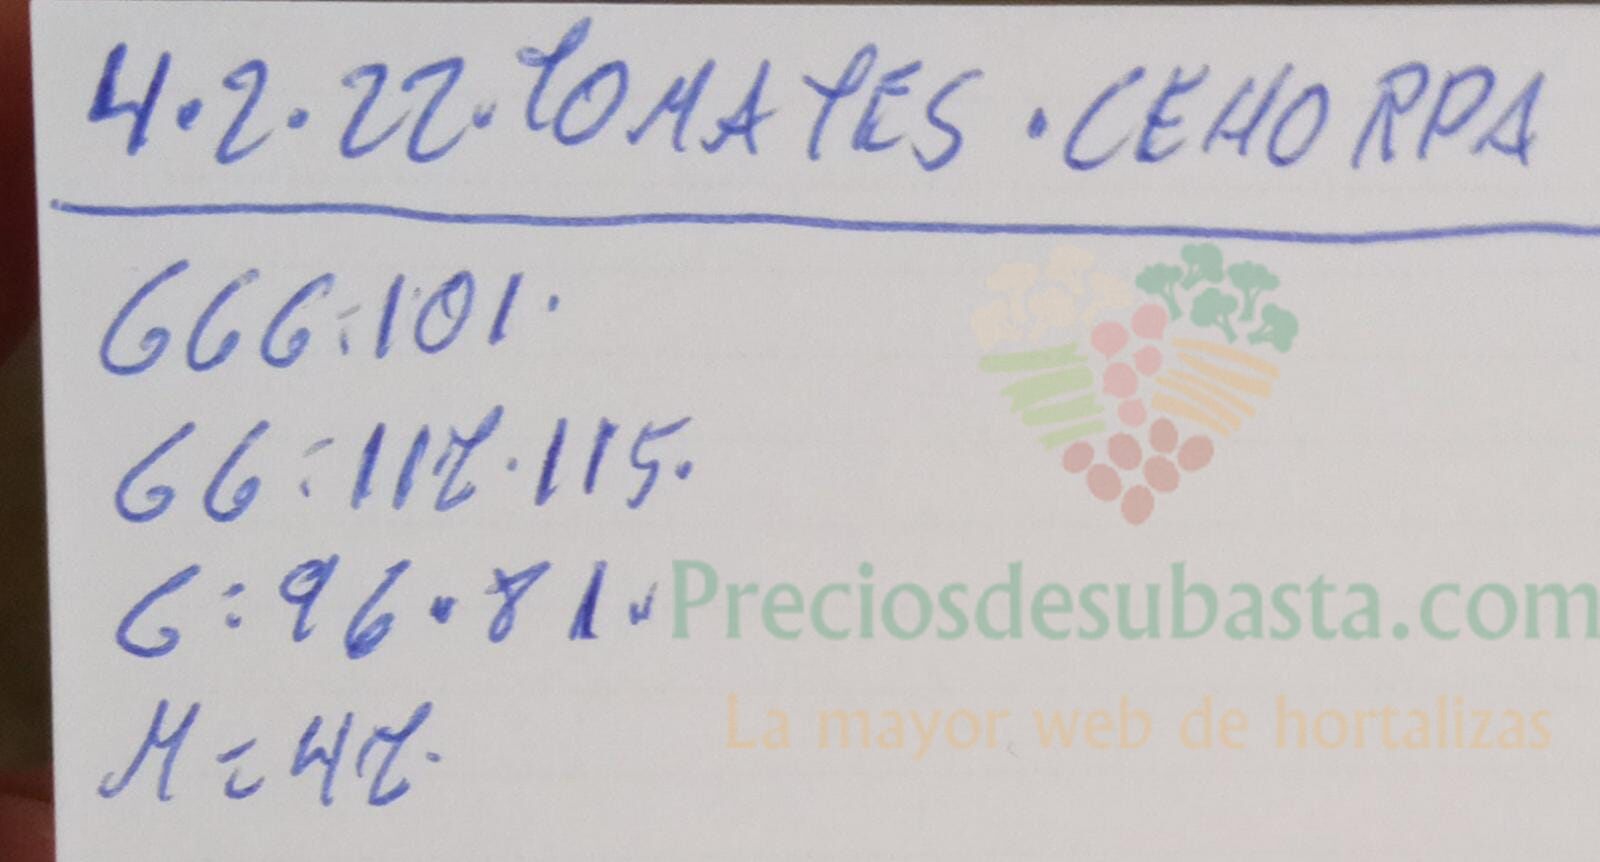 4.2.22. TOMATES. CEHORPA
GGG: 101.
GG: 117. 115.
G: 96. 81.
M: 47.
Preciosdesubasta.com
La mayor web de hortalizas